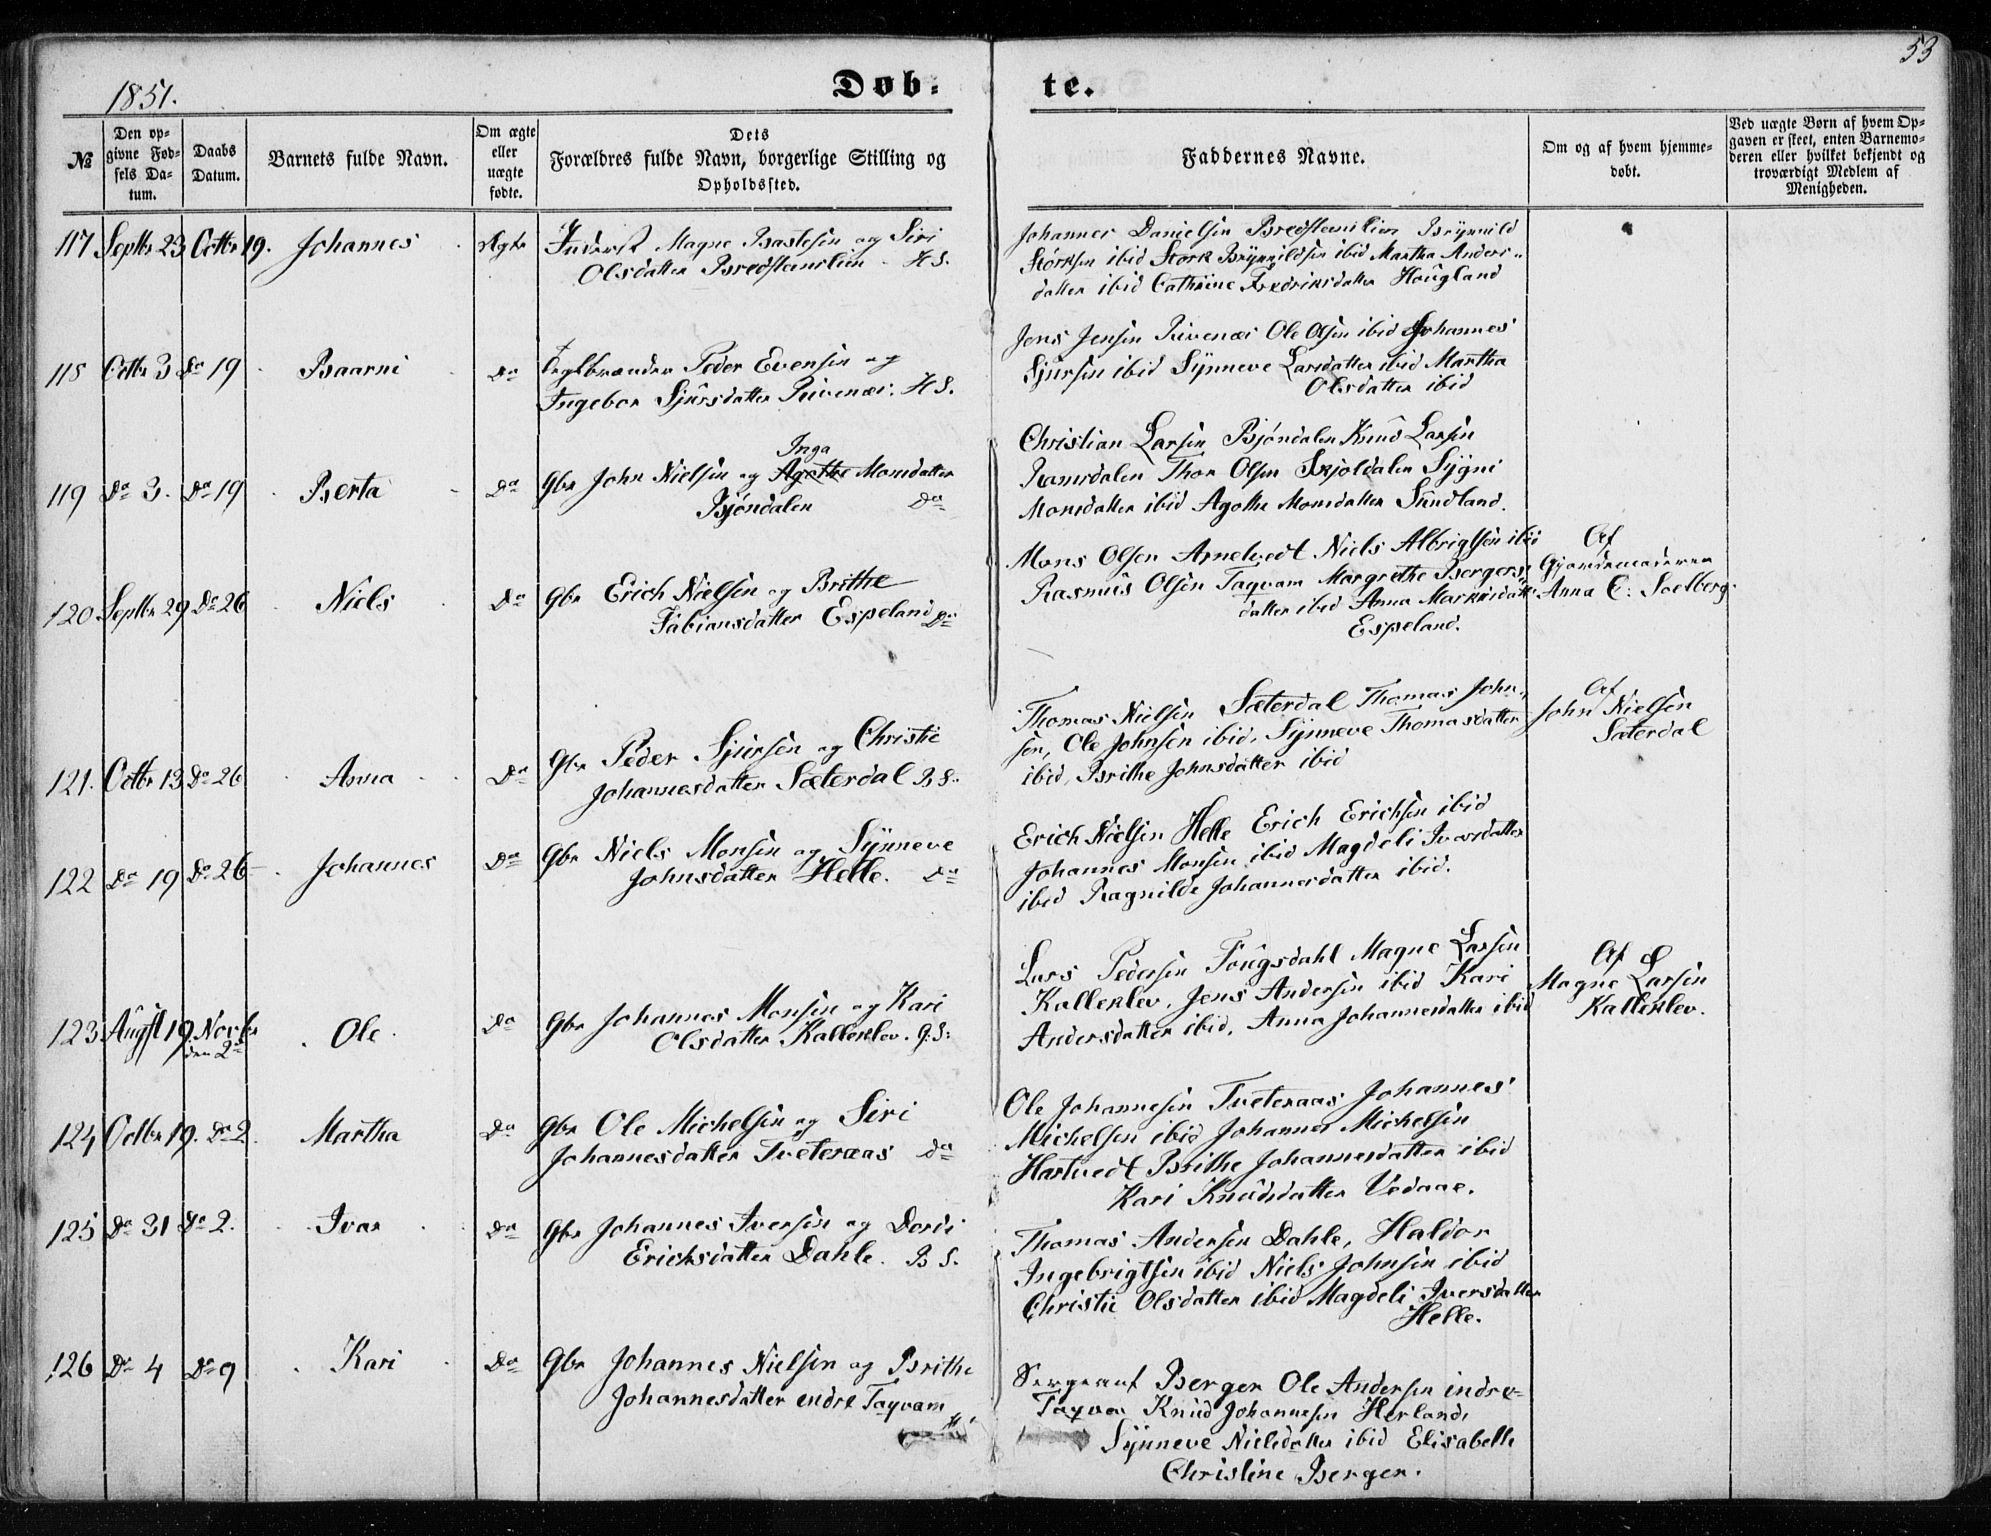 1851.
Døb-
te.
53
№
Den op-
givne Fød-
sels Da-
tum.
Daabs
Datum.
Barnets fulde Navn.
Om ægte
eller
uægte
fødte.
Dets
Forældres fulde Navn, borgerlige Stilling og
Opholdssted.
Faddernes Navne.
Om og af hvem hjemme-
døbt.
Ved uægte Børn af hvem Op-
gaven er skeet, enten Barnemo-
deren eller hvilket bekjendt og
troværdigt Medlem af
Menigheden.
117 Septbr 23 Octbr 19. Johannes Ægte
Inderst Magne Bastesen og Siri
Olsdatter Bredstenilien H S.
Johannes Danielsen Bredstenilien Brynnild
Størksen ibid Størk Brynnildsen ibid Martha Anders-
datter ibid Cathrine Fredriksdatter Hougland
118 Octbr 3 Do 19 Baarni Do
Peder Evensen og
Ingebor Sjursdatter Rivenæs. H S.
Jens Jensen Rivenæs Ole Olsen ibid Johannes
Sjursen ibid Synneve Larsdatter ibid Martha
Olsdatter ibid
119 Do 3. Do 19 Berta Do
Inga
Gbr John Nielsen og Agathe Monsdatter
Bjöndalen Do
Christian Larsen Bjöndalen Knud Larsen
Ramsdalen Thor Olsen Skjoldalen Sygni
Monsdatter ibid Agathe Monsdatter Sundland.
120 Septbr 29 Do 26 Niels Do
Gbr Erich Nielsen og Brithe
Fabiansdatter Espeland Do
Mons Olsen Arnetvedt Niels Albrigtsen ibid
Rasmus Olsen Taqvam Margrethe Bergers-
datter ibid Anna Markusdatter
Espeland.
Af
Gjordemoderen
Anna C: Soelberg.
121. Octbr 13 Do 26 Anna Do
Gbr Peder Sjursen og Christi
Johannesdatter Sæterdal B S.
Thomas Nielsen Sæterdal Thomas John-
sen, Ole Johnsen ibid, Synneve Thomasdatter
ibid, Brithe Johnsdatter ibid
Af
John Nielsen
Sæterdal
122 Do 19 Do 26 Johannes Do
Gbr Niels Monsen og Synneve
Johnsdatter Helle. Do
Erich Nielsen Helle Erich Erichsen ibid
Johannes Monsen ibid Magdeli Iversdatter
ibid Ragnilde Johannesdatter ibid.
123 Augst 19. Novbr Ole Do
den 2den
Gbr Johannes Monsen og Kari
Olsdatter Kalleklev. G: S:
Lars Pedersen Fougsdahl Magne Larsen
Kalleklev, Jens Andersen ibid Kari
Andersdatter ibid, Anna Johannesdatter ibid
Af
Magne Larsen
Kalleklev.
124 Octbr 19. Do 2 Martha Do
Gbr Ole Michelsen og Siri
Johannesdatter Tveteraas Do
Ole Johannesen Tveteraas Johannes
Michelsen ibid Johannes Michelsen
Hartvedt Brithe Johannesdatter ibid
Kari Knudsdatter Vedaae.
125 Do 31 Do 2. Ivar Do
Gbr Johannes Iversen og Dordi
Erichsdatter Dahle. B S.
Thomas Andersen Dahle, Haldor
Ingebrigtsen ibid Niels Johnsen ibid
Christi Olsdatter ibid Magdeli Iversdatter
Helle.
126 Do 4 Do 9 Kari Do
Gbr Johannes Nielsen og Brithe
Johannesdatter indre Taqvam
Sergeant Berger Ole Andersen indre-
Taqvam Knud Johannesen Herland,
Synneve Nielsdatter ibid Elisabeth
Christine Berger.